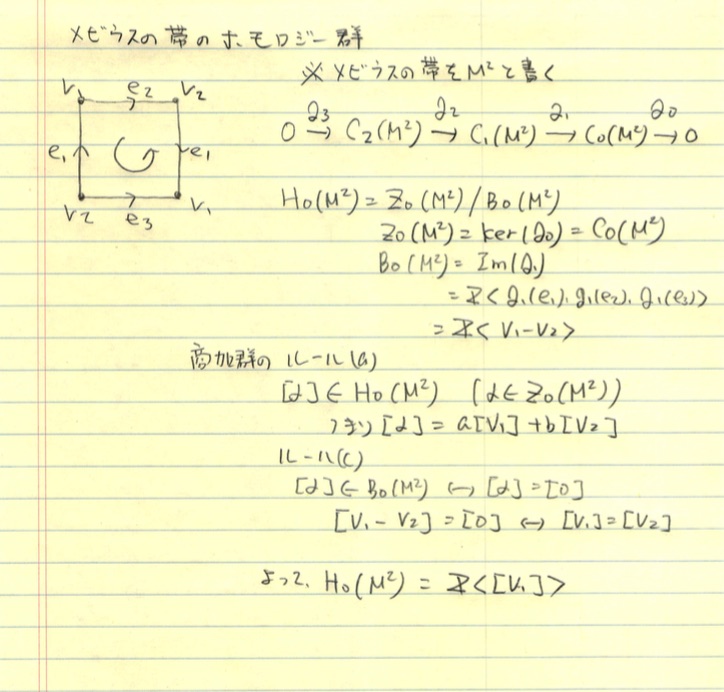 メビウスの帯のホモロジー群
※ メビウスの帯をM²と書く
V₁ e₂ V₂
e₁ e₁
V₂ e₃ V₁
0 →∂₃ C₂(M²) →∂₂ C₁(M²) →∂₁ C₀(M²) →∂₀ 0
H₀(M²) = Z₀(M²) / B₀(M²)
Z₀(M²) = ker(∂₀) = C₀(M²)
B₀(M²) = Im(∂₁)
= ℤ< ∂₁(e₁), ∂₁(e₂), ∂₁(e₃)>
= ℤ< V₁-V₂ >
商加群の ルール(a)
[α] ∈ H₀(M²) (α ∈ Z₀(M²))
つまり [α] = a[V₁] + b[V₂]
ルール(c)
[α] ∈ B₀(M²) ↔ [α] = [0]
[V₁ - V₂] = [0] ↔ [V₁] = [V₂]
よって、H₀(M²) = ℤ<[V₁]>